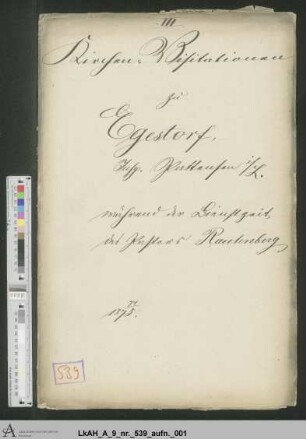 III
Kirchen-Visitationen
zu
Egestorf,
Insp. Pattensen i/L.
während der Dienstzeit
des Pastors Rautenberg
1875.
539
LkAH_A_9_nr._539_aufn._001